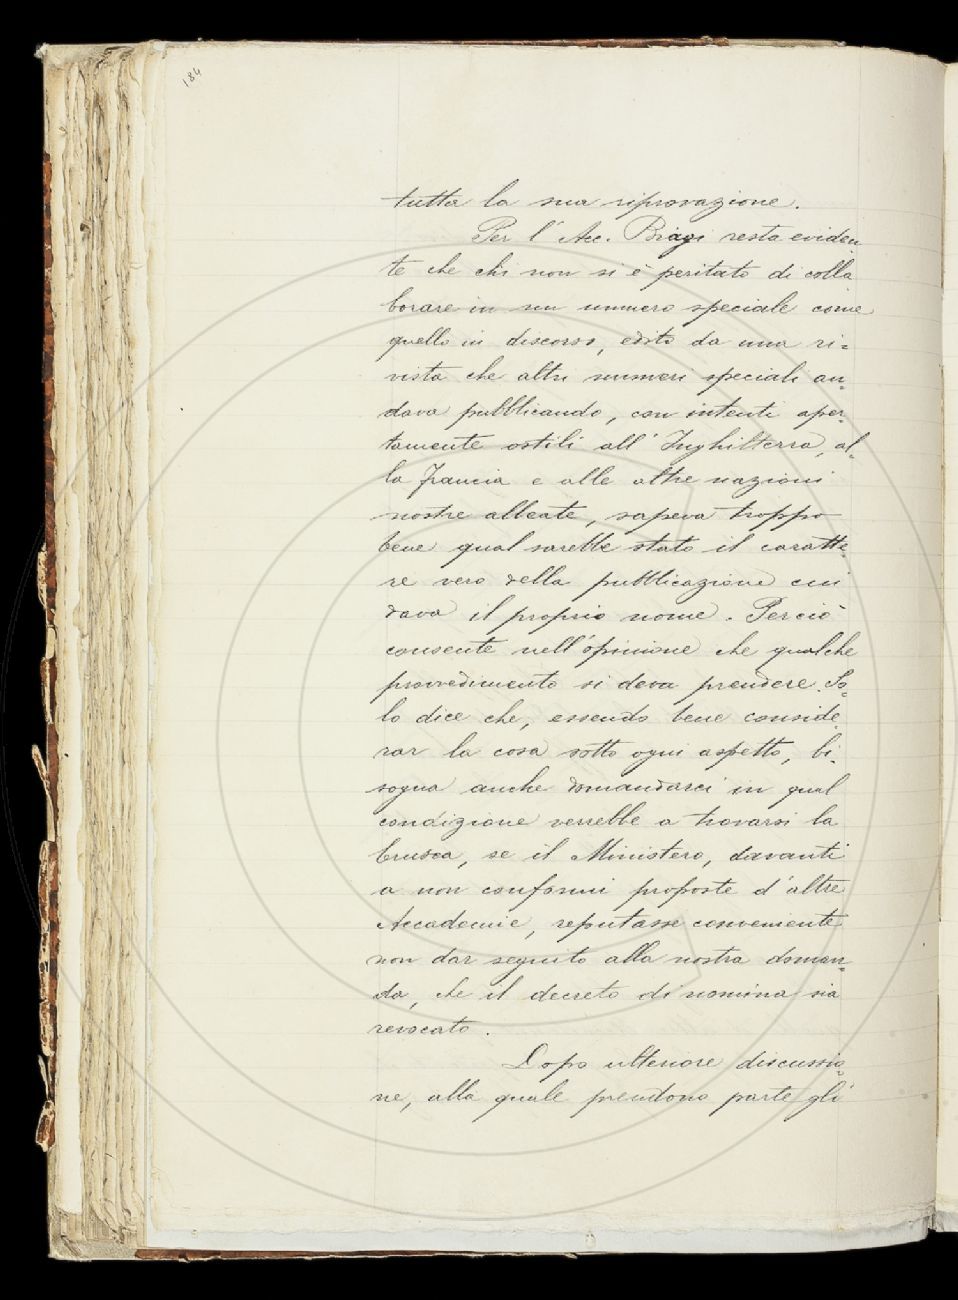 184
tutta la sua riprovazione.
Per l'Acc. Biagi resta eviden
te che chi non si è peritato di colla
borare in un numero speciale come
quello in discorso, edito da una ri=
vista che altri numeri speciali an=
dava pubblicando, con intenti aper=
tamente ostili all'Inghilterra, al=
la Francia e alle altre nazioni
nostre alleate, sapeva troppo
bene qual sarebbe stato il caratte=
re vero della pubblicazione cui
dava il proprio nome. Perciò
consente nell'opinione che qualche
provvedimento si deva prendere. So=
lo dice che, essendo bene conside=
rar la cosa sotto ogni aspetto, bi=
sogna anche domandarci in qual
condizione verrebbe a trovarsi la
Crusca, se il Ministero, davanti
a non conformi proposte d'altre
Accademie, reputasse conveniente
non dar seguito alla nostra doman=
da, che il decreto di nomina sia
revocato.
Dopo ulteriore discussio=
ne, alla quale prendono parte gli